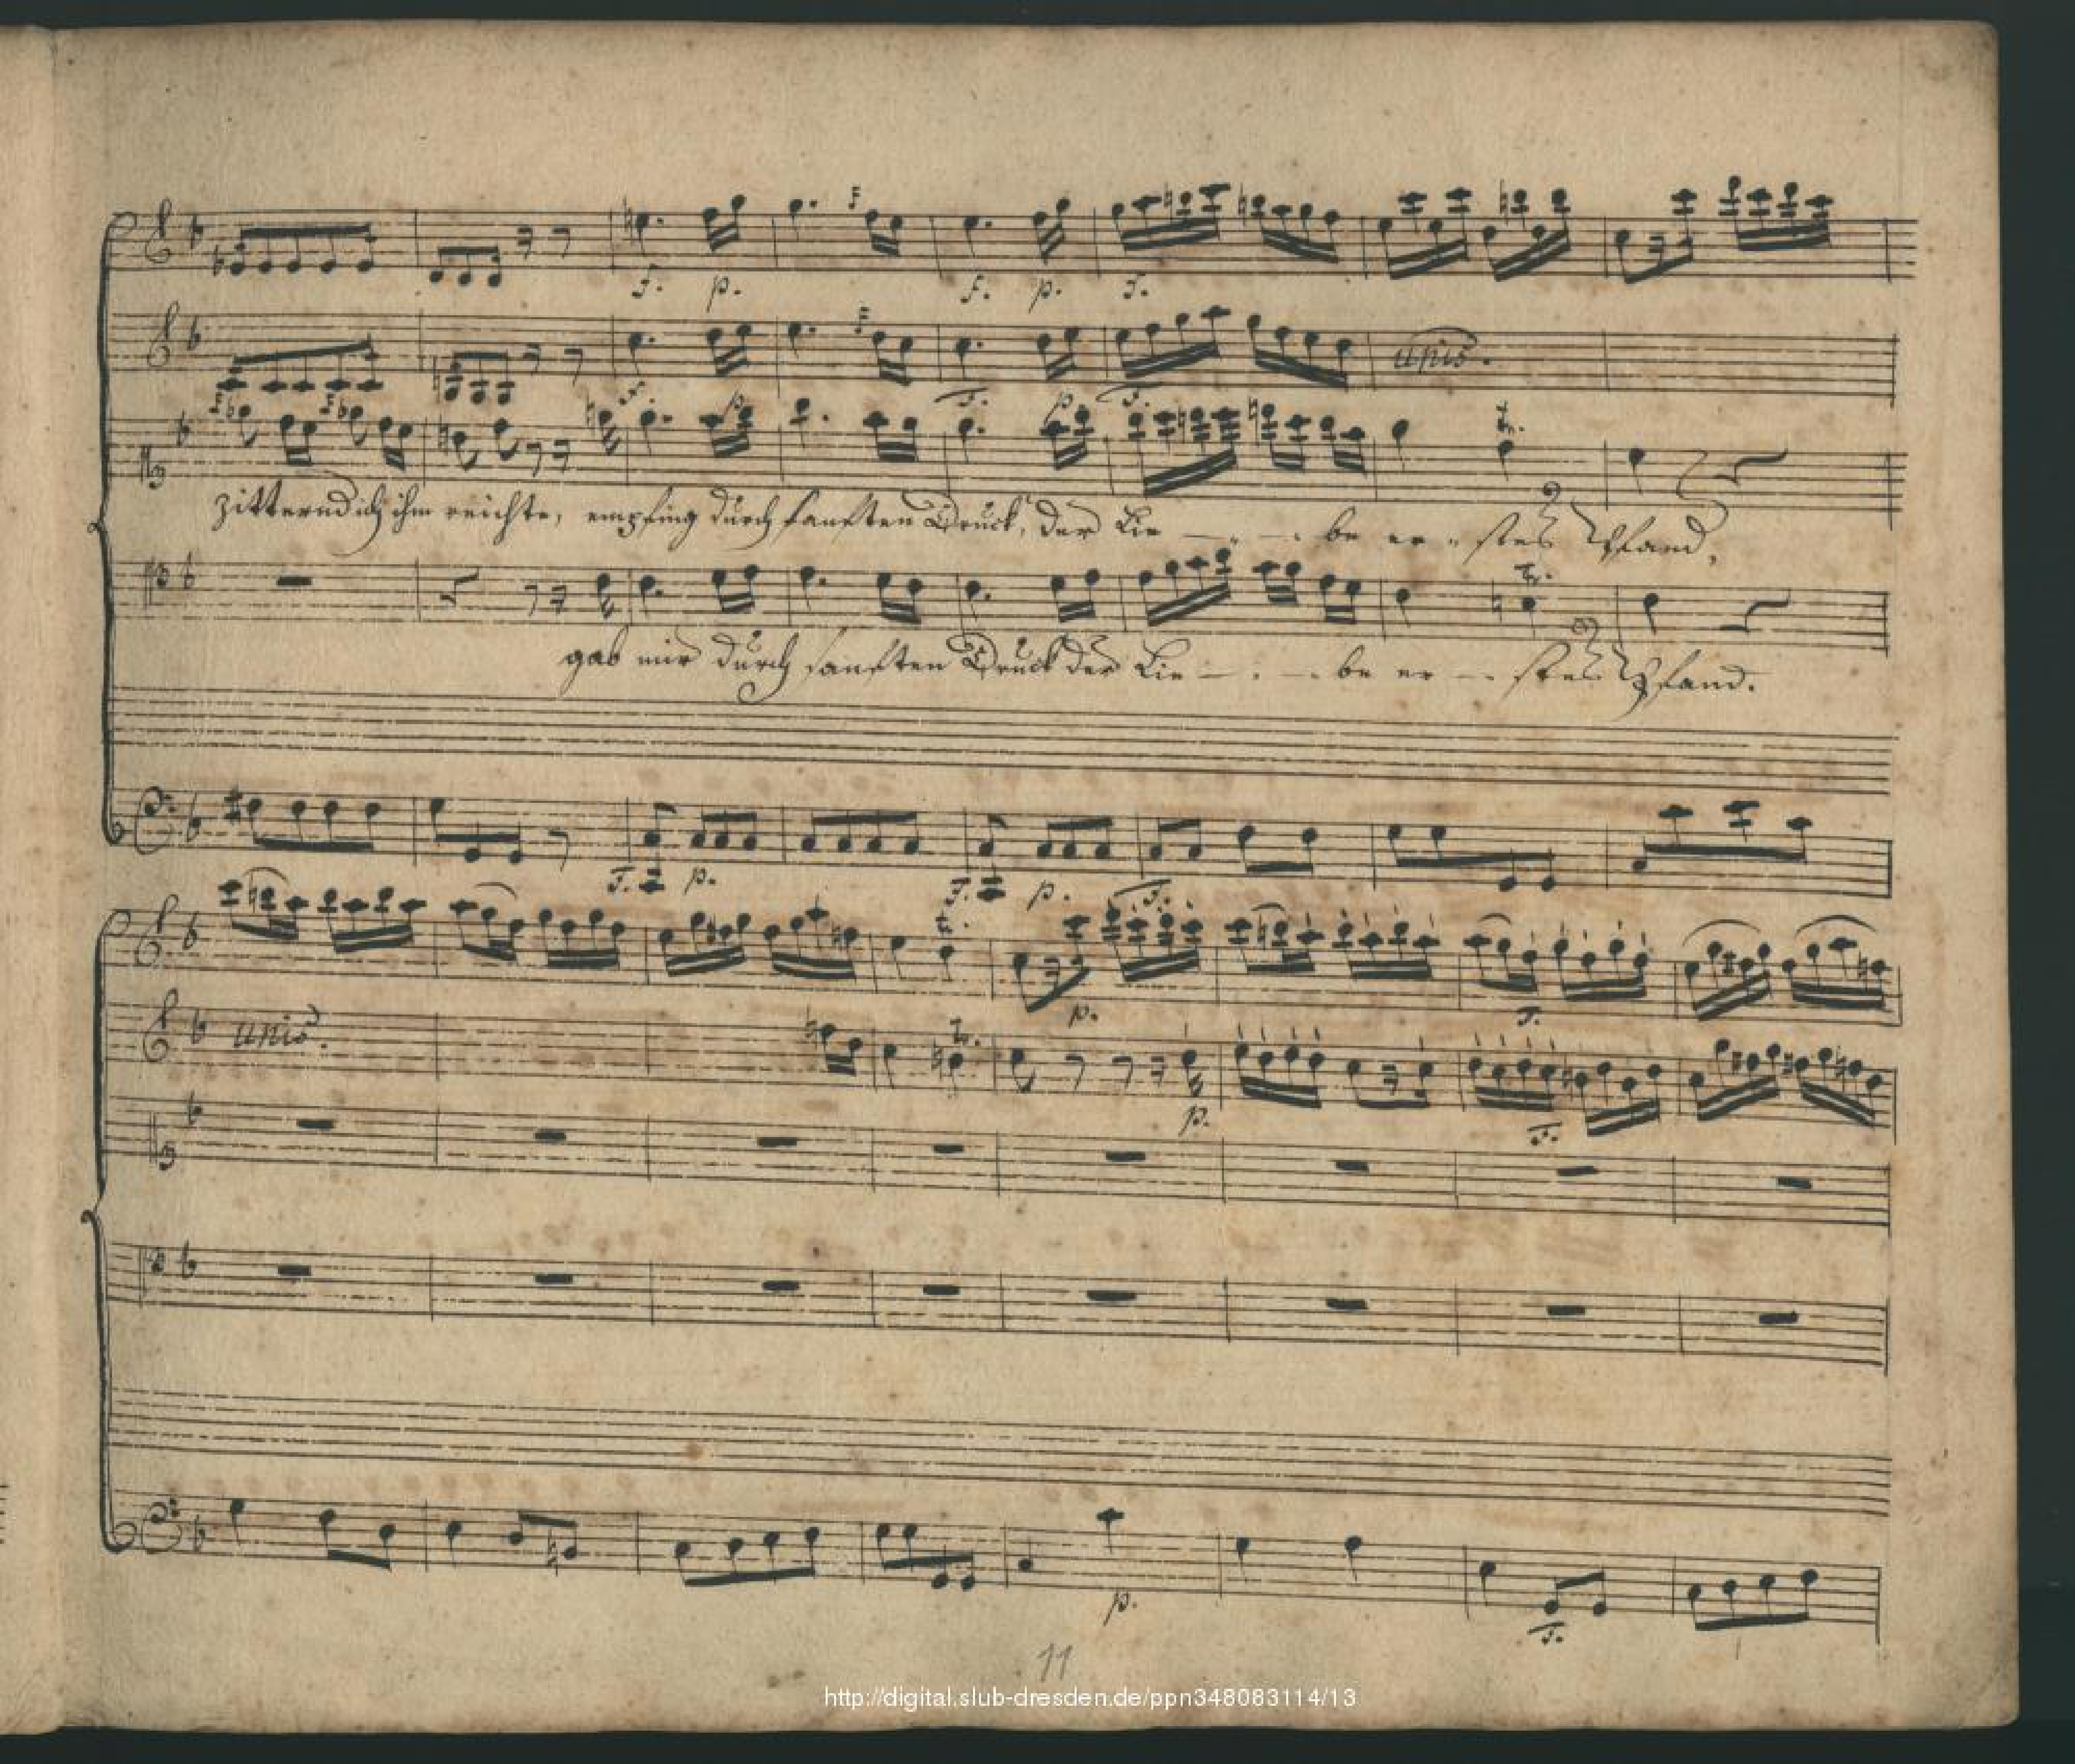 f. p. f. p. f.
unis.
f. p. f. p. f.
tr.
zitternd ich ihm reichte, empfing durch sanften Druck, der Lie - - - be er - stes Pfand,
tr.
gab mir durch sanften Druck der Lie - - - be er - - stes Pfand.
f. p. f. p. f.
tr.
p. f.
unis. tr.
p. f.
p. f.
11
http://digital.slub-dresden.de/ppn348083114/13